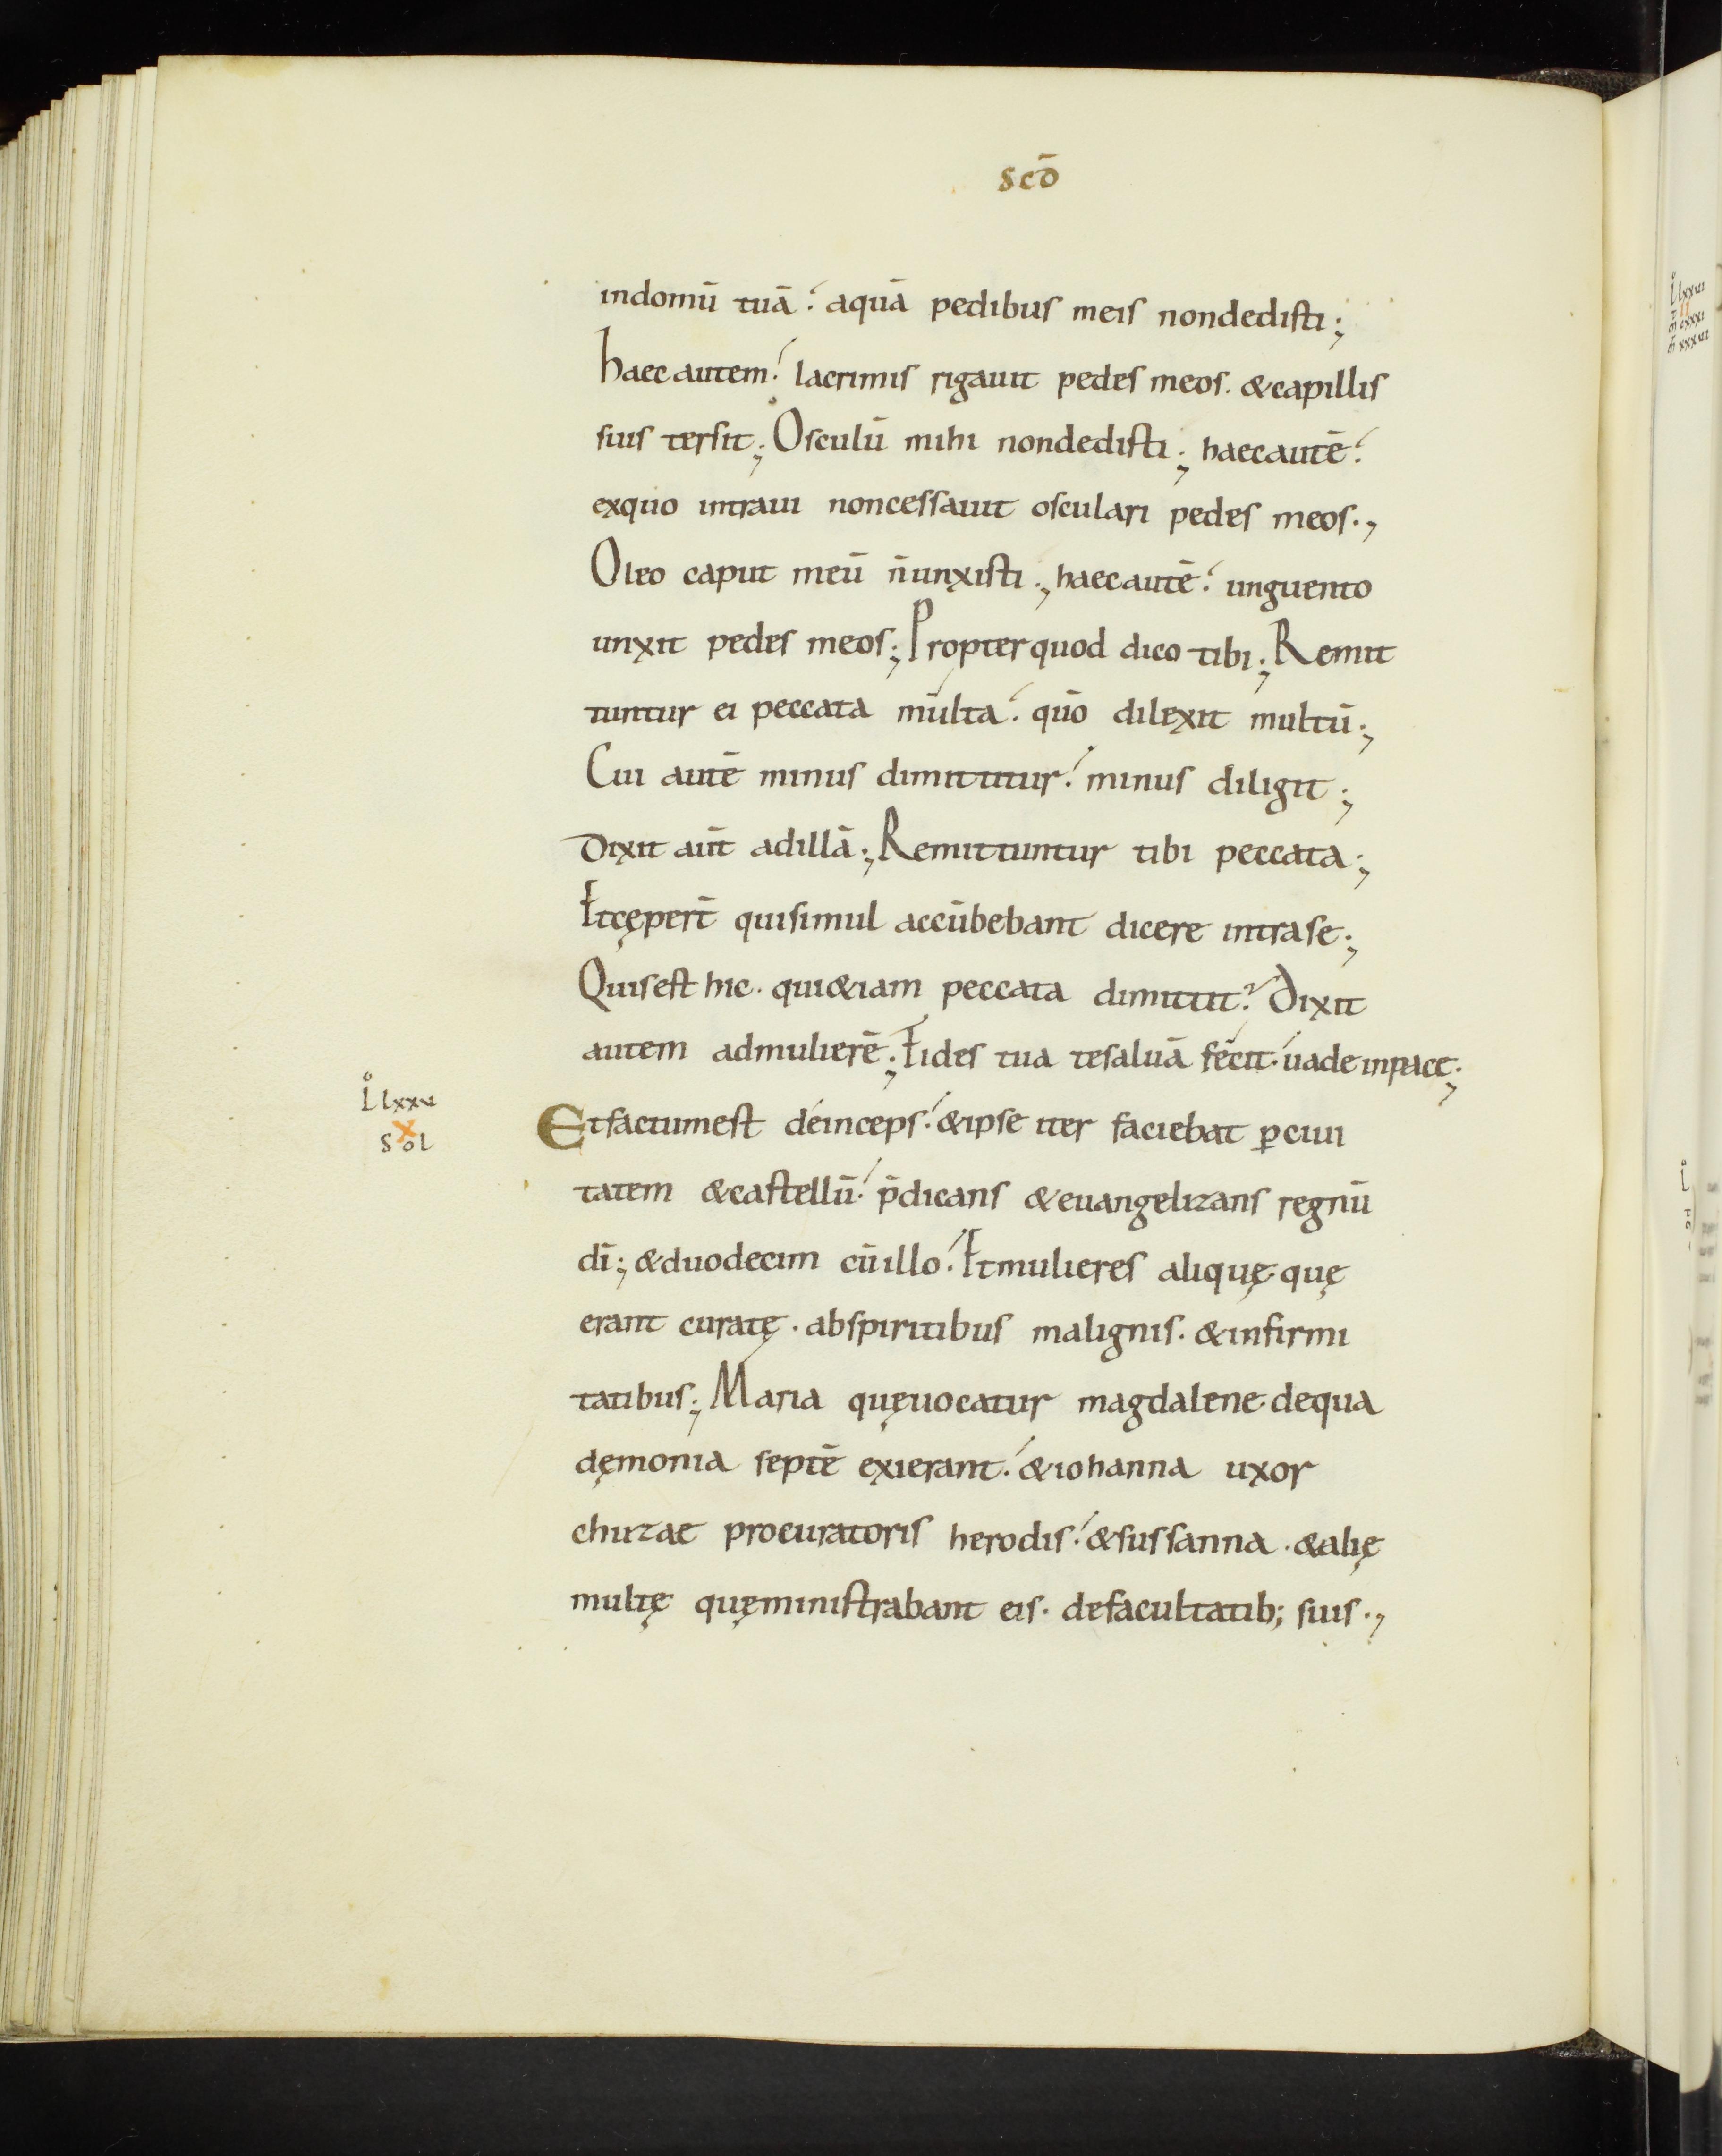 scō
indomū tuā. aquā pedibus meis nondedisti;
haec autem. lacrimis rigauit pedes meos. &capillis
suis tersit; Osculū mihi nondedisti; haecautē.
exquo intraui noncessauit osculari pedes meos.,
Oleo caput meū n̄unxisti., haecautē. unguento
unxit pedes meos; Propterquod dico tibi; Remit
tuntur ei peccata multa. qūo dilexit multū;
Cui autē minus dimittitur. minus diligit;
Dixit aūt adillā; Remittuntur tibi peccata;
Etcęper̄t quisimul accūbebant dicere intrase;
Quisest hic. qui&iam peccata dimittit? Dixit
autem admulierē; Fides tua tesaluā fecit. uadeinpace;
L lxxv
X
sol
Etfactumest deinceps. &ipse iter faciebat ꝑciui
tatem &castellū. p̄dicans &euangelizans regnū
dī; &duodecim cūillo. Etmulieres aliquę. quę
erant curatę. abspiritibus malignis. &infirmi
tatibus; Maria quęuocatur magdalene. dequa
dęmonia septē exierant. &iohanna uxor
chuzae procuratoris herodis. &sussanna. &alię
multę quęministrabant eis. defacultatib; suis.,